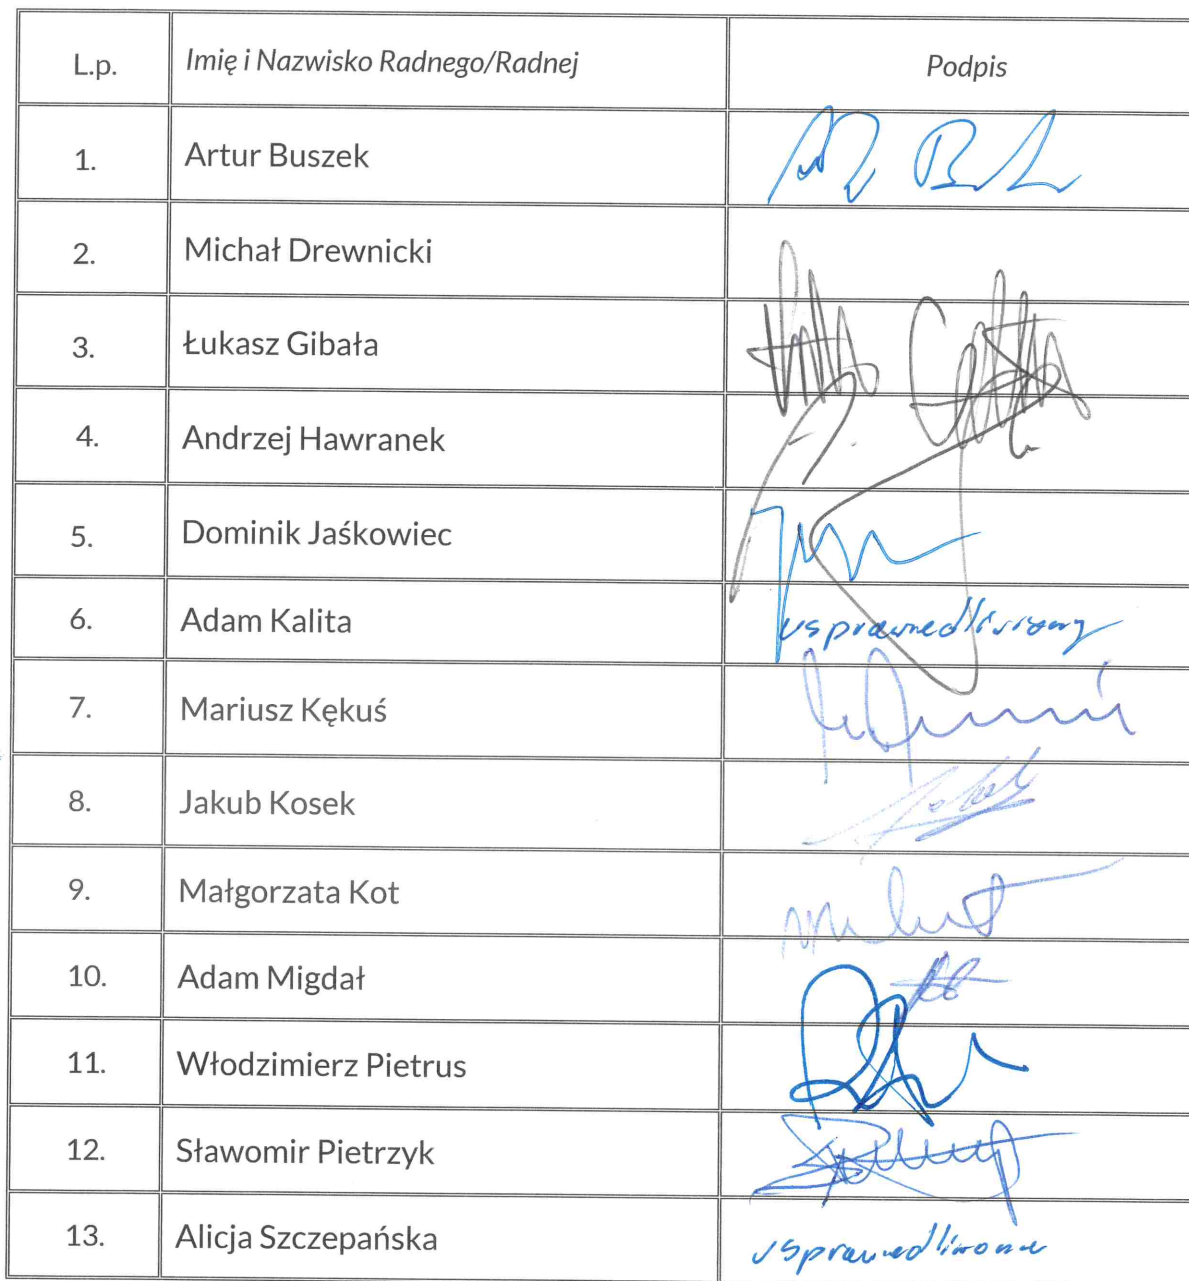 L.p. Imię i Nazwisko Radnego/Radnej Podpis
1. Artur Buszek
2. Michał Drewnicki
3. Łukasz Gibała
4. Andrzej Hawranek
5. Dominik Jaśkowiec
6. Adam Kalita usprawiedliwiony
7. Mariusz Kękuś
8. Jakub Kosek
9. Małgorzata Kot
10. Adam Migdał
11. Włodzimierz Pietrus
12. Sławomir Pietrzyk
13. Alicja Szczepańska usprawiedliwiona